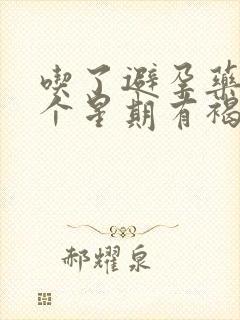 喫了避孕藥
个星期有褐
郝耀泉